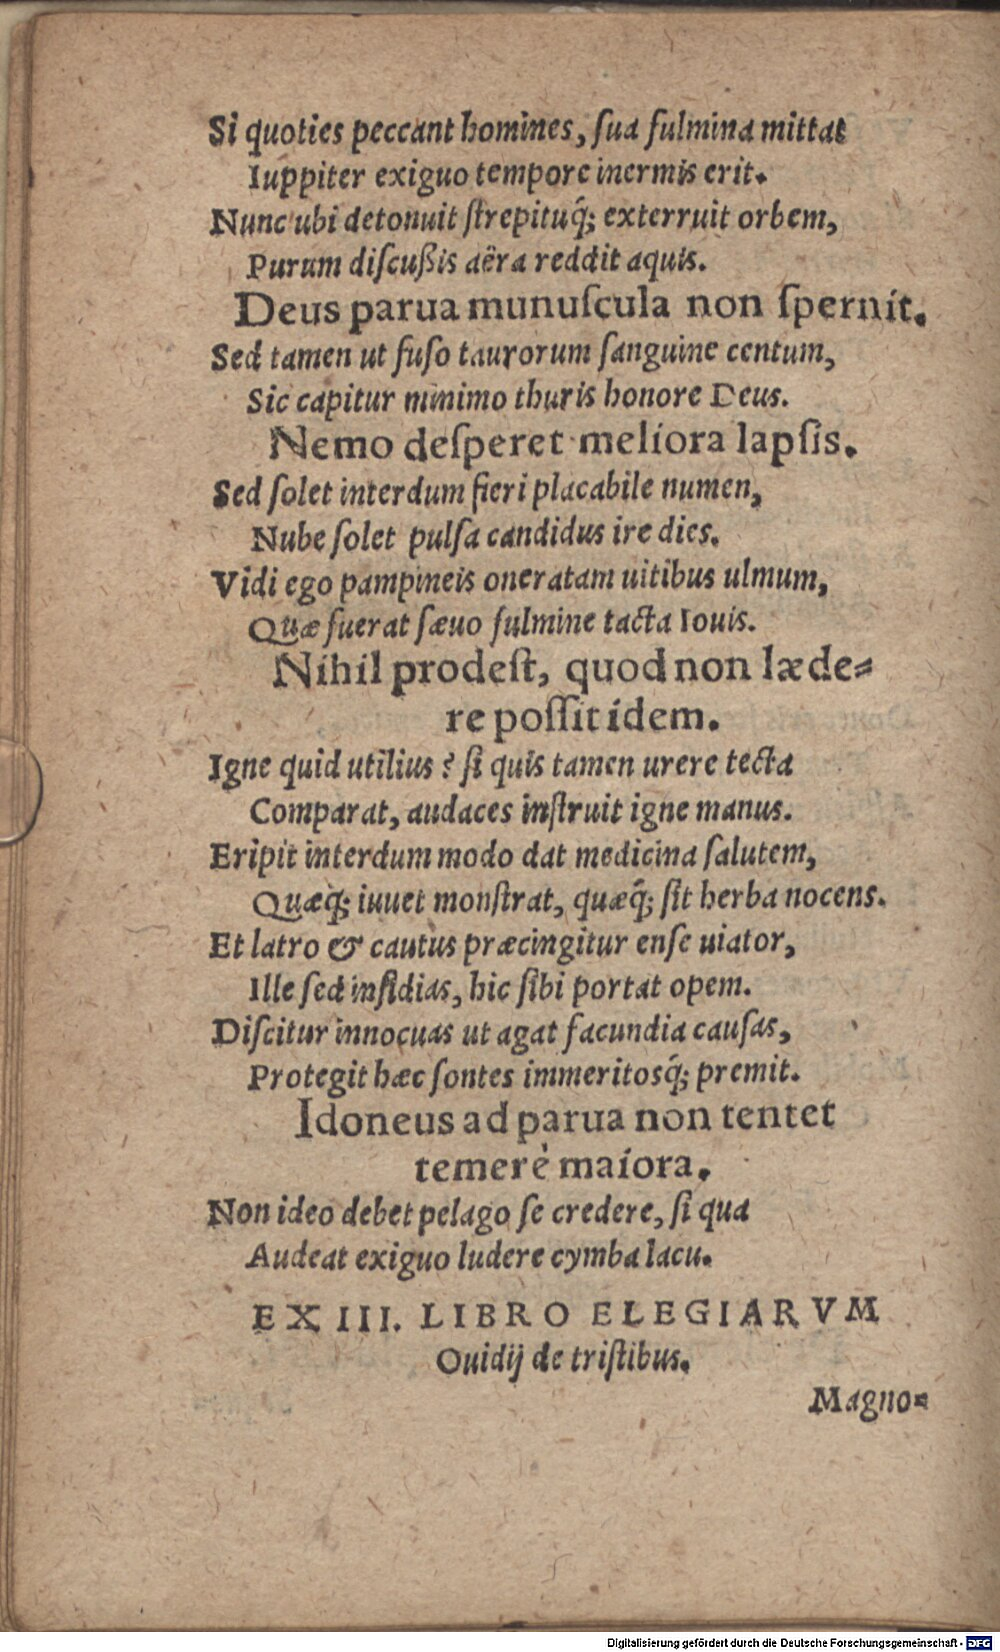 Si quoties peccant homines, ſua fulmina mittat
Iuppiter exiguo tempore inermis erit.
Nunc ubi detonuit ſtrepituq́; exterruit orbem,
Purum diſcußis aëra reddit aquis.
Deus parua munuſcula non ſpernit.
Sed tamen ut fuſo taurorum ſanguine centum,
Sic capitur minimo thuris honore Deus.
Nemo deſperet meliora lapſis.
Sed ſolet interdum fieri placabile numen,
Nube ſolet pulſa candidus ire dies.
Vidi ego pampineis oneratam uitibus ulmum,
Quæ fuerat ſæuo fulmine tacta Iouis.
Nihil prodeſt, quod non læde⸗
re poſſit idem.
Igne quid utilius? ſi quis tamen urere tecta
Comparat, audaces inſtruit igne manus.
Eripit interdum modo dat medicina ſalutem,
Quæq́; iuuet monſtrat, quæq́; ſit herba nocens.
Et latro & cautus præcingitur enſe uiator,
Ille ſed inſidias, hic ſibi portat opem.
Diſcitur innocuas ut agat facundia cauſas,
Protegit hæc ſontes immeritosq́; premit.
Idoneus ad parua non tentet
temerè maiora.
Non ideo debet pelago ſe credere, ſi qua
Audeat exiguo ludere cymba lacu.
EX III. LIBRO ELEGIARVM
Ouidij de triſtibus.
Magno⸗
Digitalisierung gefördert durch die Deutsche Forschungsgemeinschaft - DFG